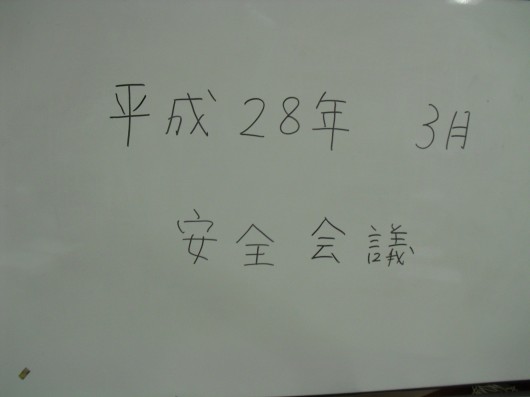 平成28年 3月
安全会議